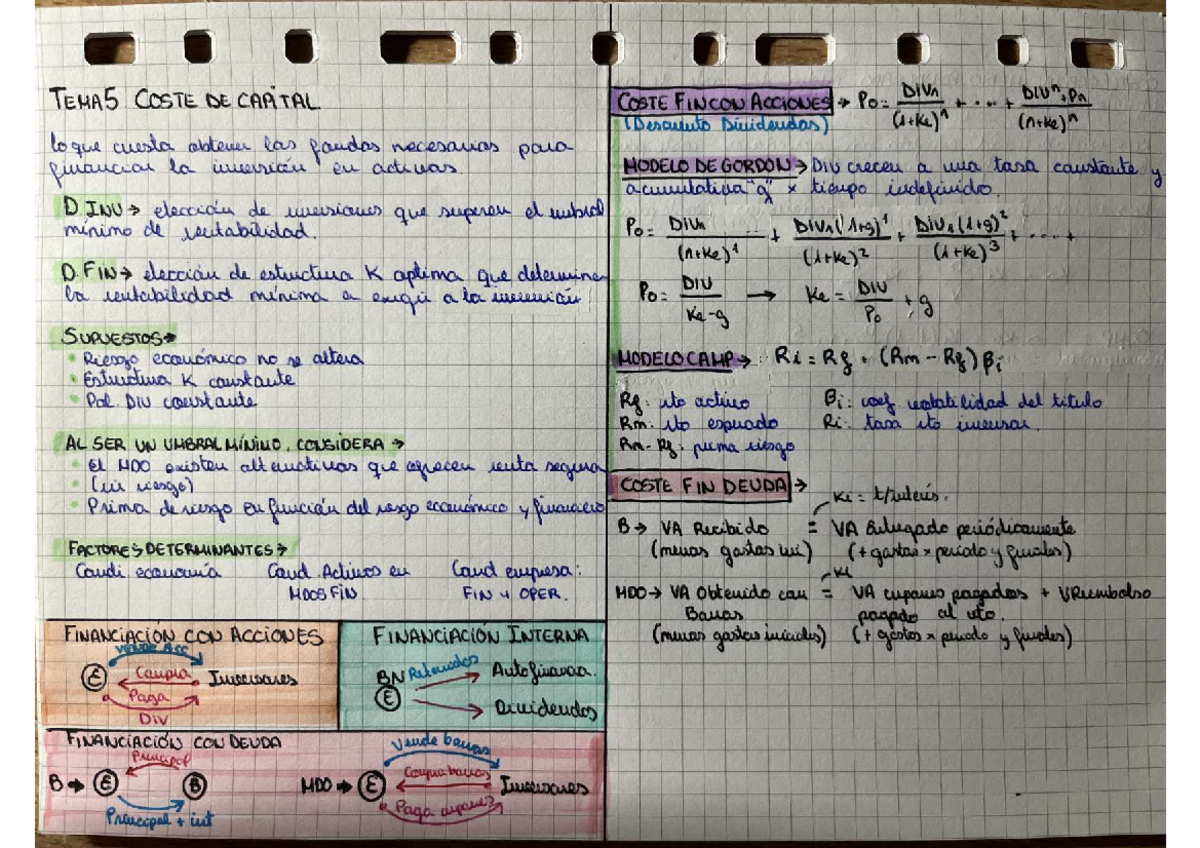 TEMA 5 COSTE DE CAPITAL
lo que cuesta obtener los fondos necesarios para
financiar la inversión en activos.
D. INV → elección de inversiones que superen el umbral
mínimo de rentabilidad.
D. FIN → elección de estructura K optima que determine
la rentabilidad mínima a exigir a la inversión
SUPUESTOS →
• Riesgo económico no se altera
• Estructura K constante
• Pol. DIV constante
AL SER UN UMBRAL MÍNIMO, CONSIDERA →
• El MDO existen alternativas que ofrecen renta segura
• (sin riesgo)
• Prima de riesgo en función del riesgo económico y financiero
FACTORES DETERMINANTES →
Condi. economía Cond. Activos en Cond empresa:
MDOS FIN FIN y OPER.
FINANCIACIÓN CON ACCIONES
Vende Acc
E Compra Inversores
Paga
Div
FINANCIACIÓN INTERNA
BN Retenidos Autofinanca.
E Dividendos
FINANCIACIÓN CON DEUDA
Principal
B → E B
Principal + int
Vende bonos
MDO → E Compra bonos Inversores
Paga cupones
COSTE FIN CON ACCIONES → P0 = DIV1 / (1+Ke)^1 + ... + DIVn+Pn / (1+Ke)^n
(Descuento Dividendos)
MODELO DE GORDON → Div crecen a una tasa constante y
acumulativa "g" x tiempo indefinido.
P0 = DIV1 / (1+Ke)^1 + DIV1(1+g)^1 / (1+Ke)^2 + DIV1(1+g)^2 / (1+Ke)^3 + ... +
P0 = DIV / Ke-g → Ke = DIV / P0 + g
MODELO CAMP → Ri = Rf + (Rm - Rf) βi
Rf: rto activo βi: coef. volatilidad del titulo
Rm: rto esperado Ri: tasa rto inversor.
Rm - Rf: prima riesgo
COSTE FIN DEUDA →
Ki = t/interés.
B → VA Recibido = VA Entregado periódicamente
(menos gastos ini) (+ gastos x periodo y finales)
Ki
MDO → VA Obtenido con = VA cupones pagados + VReembolso
Bonos pagado al vto.
(menos gastos iniciales) (+ gastos x periodo y finales)